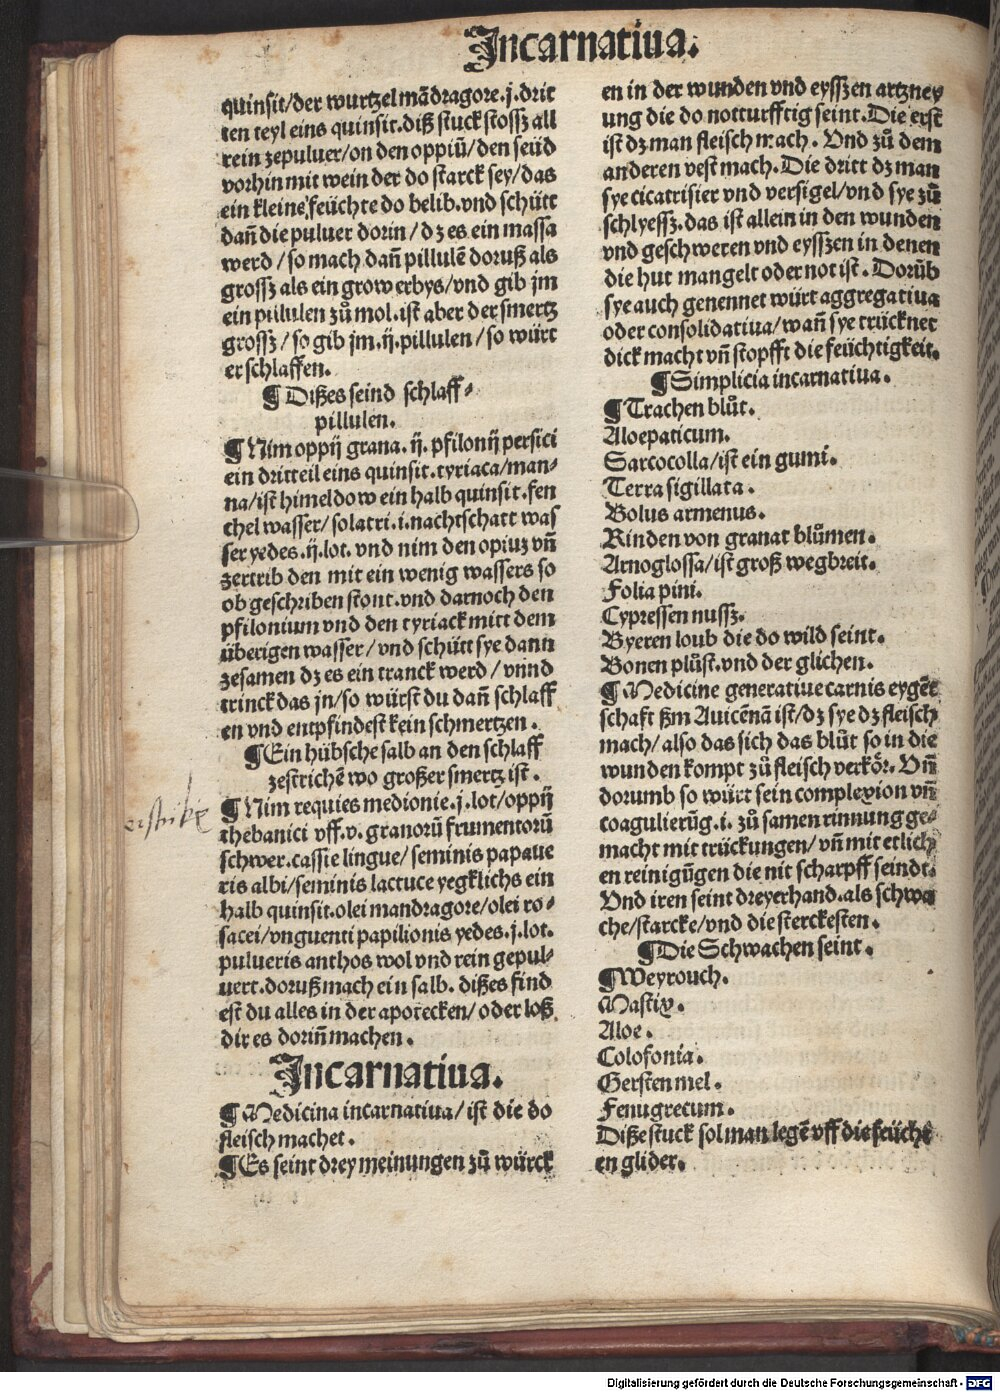 Incarnatiua.
quinsit/der wurtzel mādragore.j.drit
ten teyl eins quinsit.diß stuck stossz all
rein zepuluer/on den oppiū/den seüd
vorhin mit wein der do starck sey/das
ein kleine feüchte do belib.vnd schütt
dañ die puluer dorin/dz es ein massa
werd/so mach dañ pillulē doruß als
grossz als ein grow erbys/vnd gib jm
ein pillulen zů mol.ist aber der smertz
grossz/so gib jm.ij.pillulen/so würt
er schlaffen.
¶Dißes seind schlaff-
pillulen.
¶Nim oppij grana.ij.pfilonij persici
ein dritteil eins quinsit.tyriaca/man-
na/ist himeldow ein halb quinsit.fen
chel wasser/solatri.i.nachtschatt was
ser yedes.ij.lot.vnd nim den opiuz vñ
zertrib den mit ein wenig wassers so
ob geschriben stont.vnd darnoch den
pfilonium vnd den tyriack mitt dem
überigen wasser/vnd schütt sye dann
zesamen dz es ein tranck werd/vnnd
trinck das jn/so würst du dañ schlaff
en vnd entpfindest kein schmertzen.
¶Ein hübsche salb an den schlaff
zestrichē wo großer smertz ist.
¶Nim requies medionie.j.lot/oppij
thebanici vff.v.granorū frumentorū
schwer.cassie lingue/seminis papaue
ris albi/seminis lactuce yegklichs ein
halb quinsit.olei mandragore/olei ro-
sacei/vnguenti papilionis yedes.j.lot.
pulueris anthos wol vnd rein gepul-
uert.doruß mach ein salb.dißes find
est du alles in der apotecken/oder loß
dir es doriñ machen.
Incarnatiua.
¶Medicina incarnatiua/ist die do
fleisch machet.
¶Es seint drey meinungen zů würck
en in der wunden vnd eysszen artzney
ung die do notturfftig seint.Die erst
ist dz man fleisch mach.Vnd zů dem
anderen vest mach.Die dritt dz man
sye cicatrisier vnd versigel/vnd sye zů
schlyessz.das ist allein in den wunden
vnd geschweren vnd eysszen in denen
die hut mangelt oder not ist.Dorūb
sye auch genennet würt aggregatiua
oder consolidatiua/wañ sye trücknet
dick macht vñ stopfft die feüchtigkeit.
¶Simplicia incarnatiua.
¶Trachen blůt.
Aloepaticum.
Sarcocolla/ist ein gumi.
Terra sigillata.
Bolus armenus.
Rinden von granat blůmen.
Arnoglossa/ist groß wegbreit.
Folia pini.
Cypressen nussz.
Byeren loub die do wild seint.
Bonen plůst.vnd der glichen.
¶Medicine generatiue carnis eygēt
schaft ßm Auicēnā ist/dz sye dz fleisch
mach/also das sich das blůt so in die
wunden kompt zů fleisch verkör.Vñ
dorumb so würt sein complexion vñ
coagulierūg.i.zů samen rinnung ge-
macht mit trückungen/vñ mit etlich
en reinigūgen die nit scharpff seindt.
Vnd iren seint dreyerhand.als schwa
che/starcke/vnd die sterckesten.
¶Die Schwachen seint.
¶Weyrouch.
Mastix.
Aloe.
Colofonia.
Gersten mel.
Fenugrecum.
Diße stuck sol man legē vff die feücht
en glider.
Digitalisierung gefördert durch die Deutsche Forschungsgemeinschaft - DFG